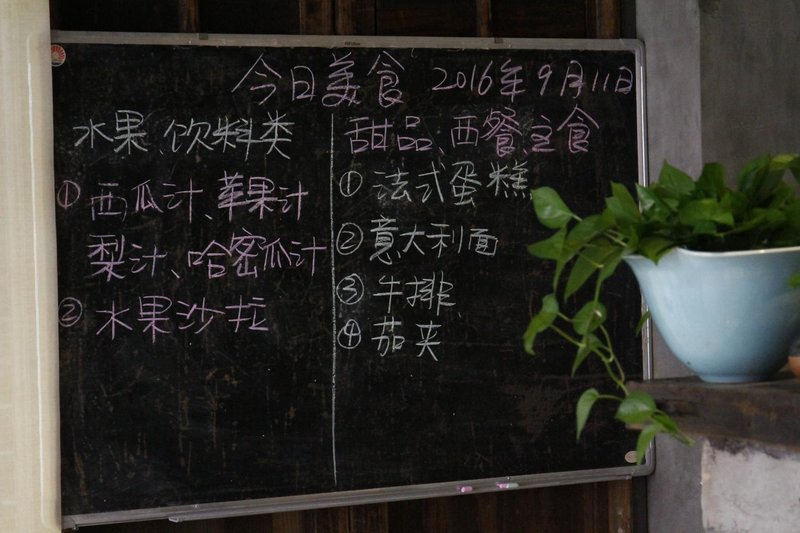 今日美食 2016年9月11日
水果、饮料类
①西瓜汁、苹果汁
梨汁、哈密瓜汁
②水果沙拉
甜品、西餐、主食
①法式蛋糕
②意大利面
③牛排
④茄夹